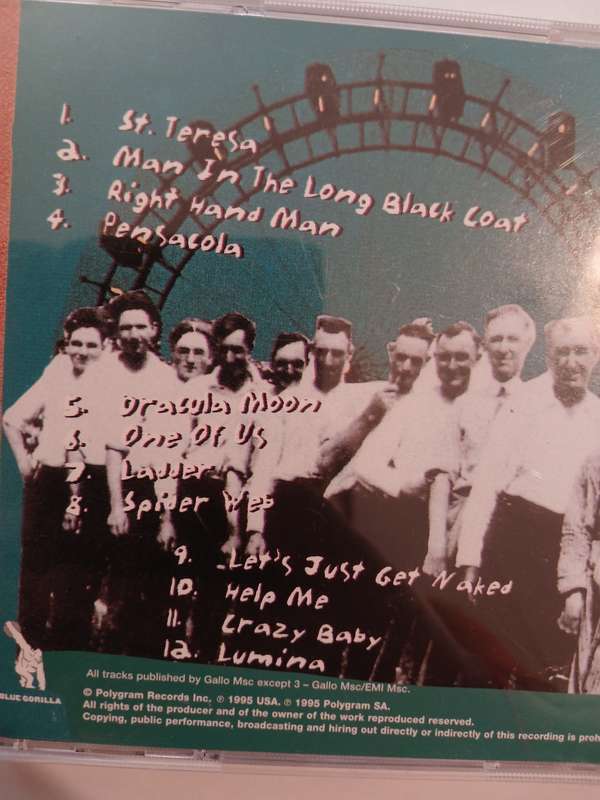 1. St. Teresa
2. Man In The Long Black Coat
3. Right Hand Man
4. Pensacola
5. Dracula Moon
6. One Of Us
7. Ladder
8. Spider Web
9. Let's Just Get Naked
10. Help Me
11. Crazy Baby
12. Lumina
All tracks published by Gallo Msc except 3 – Gallo Msc/EMI Msc.
BLUE GORILLA
© Polygram Records Inc. ℗ 1995 USA. ℗ 1995 Polygram SA.
All rights of the producer and of the owner of the work reproduced reserved.
Copying, public performance, broadcasting and hiring out directly or indirectly of this recording is